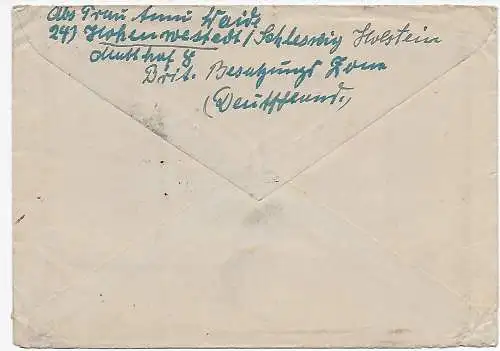 Abs Frau Anni Waide
24) Hohenwestedt/Schleswig Holstein
8
Brit. Besatzungs Zone
(Deutschland.)